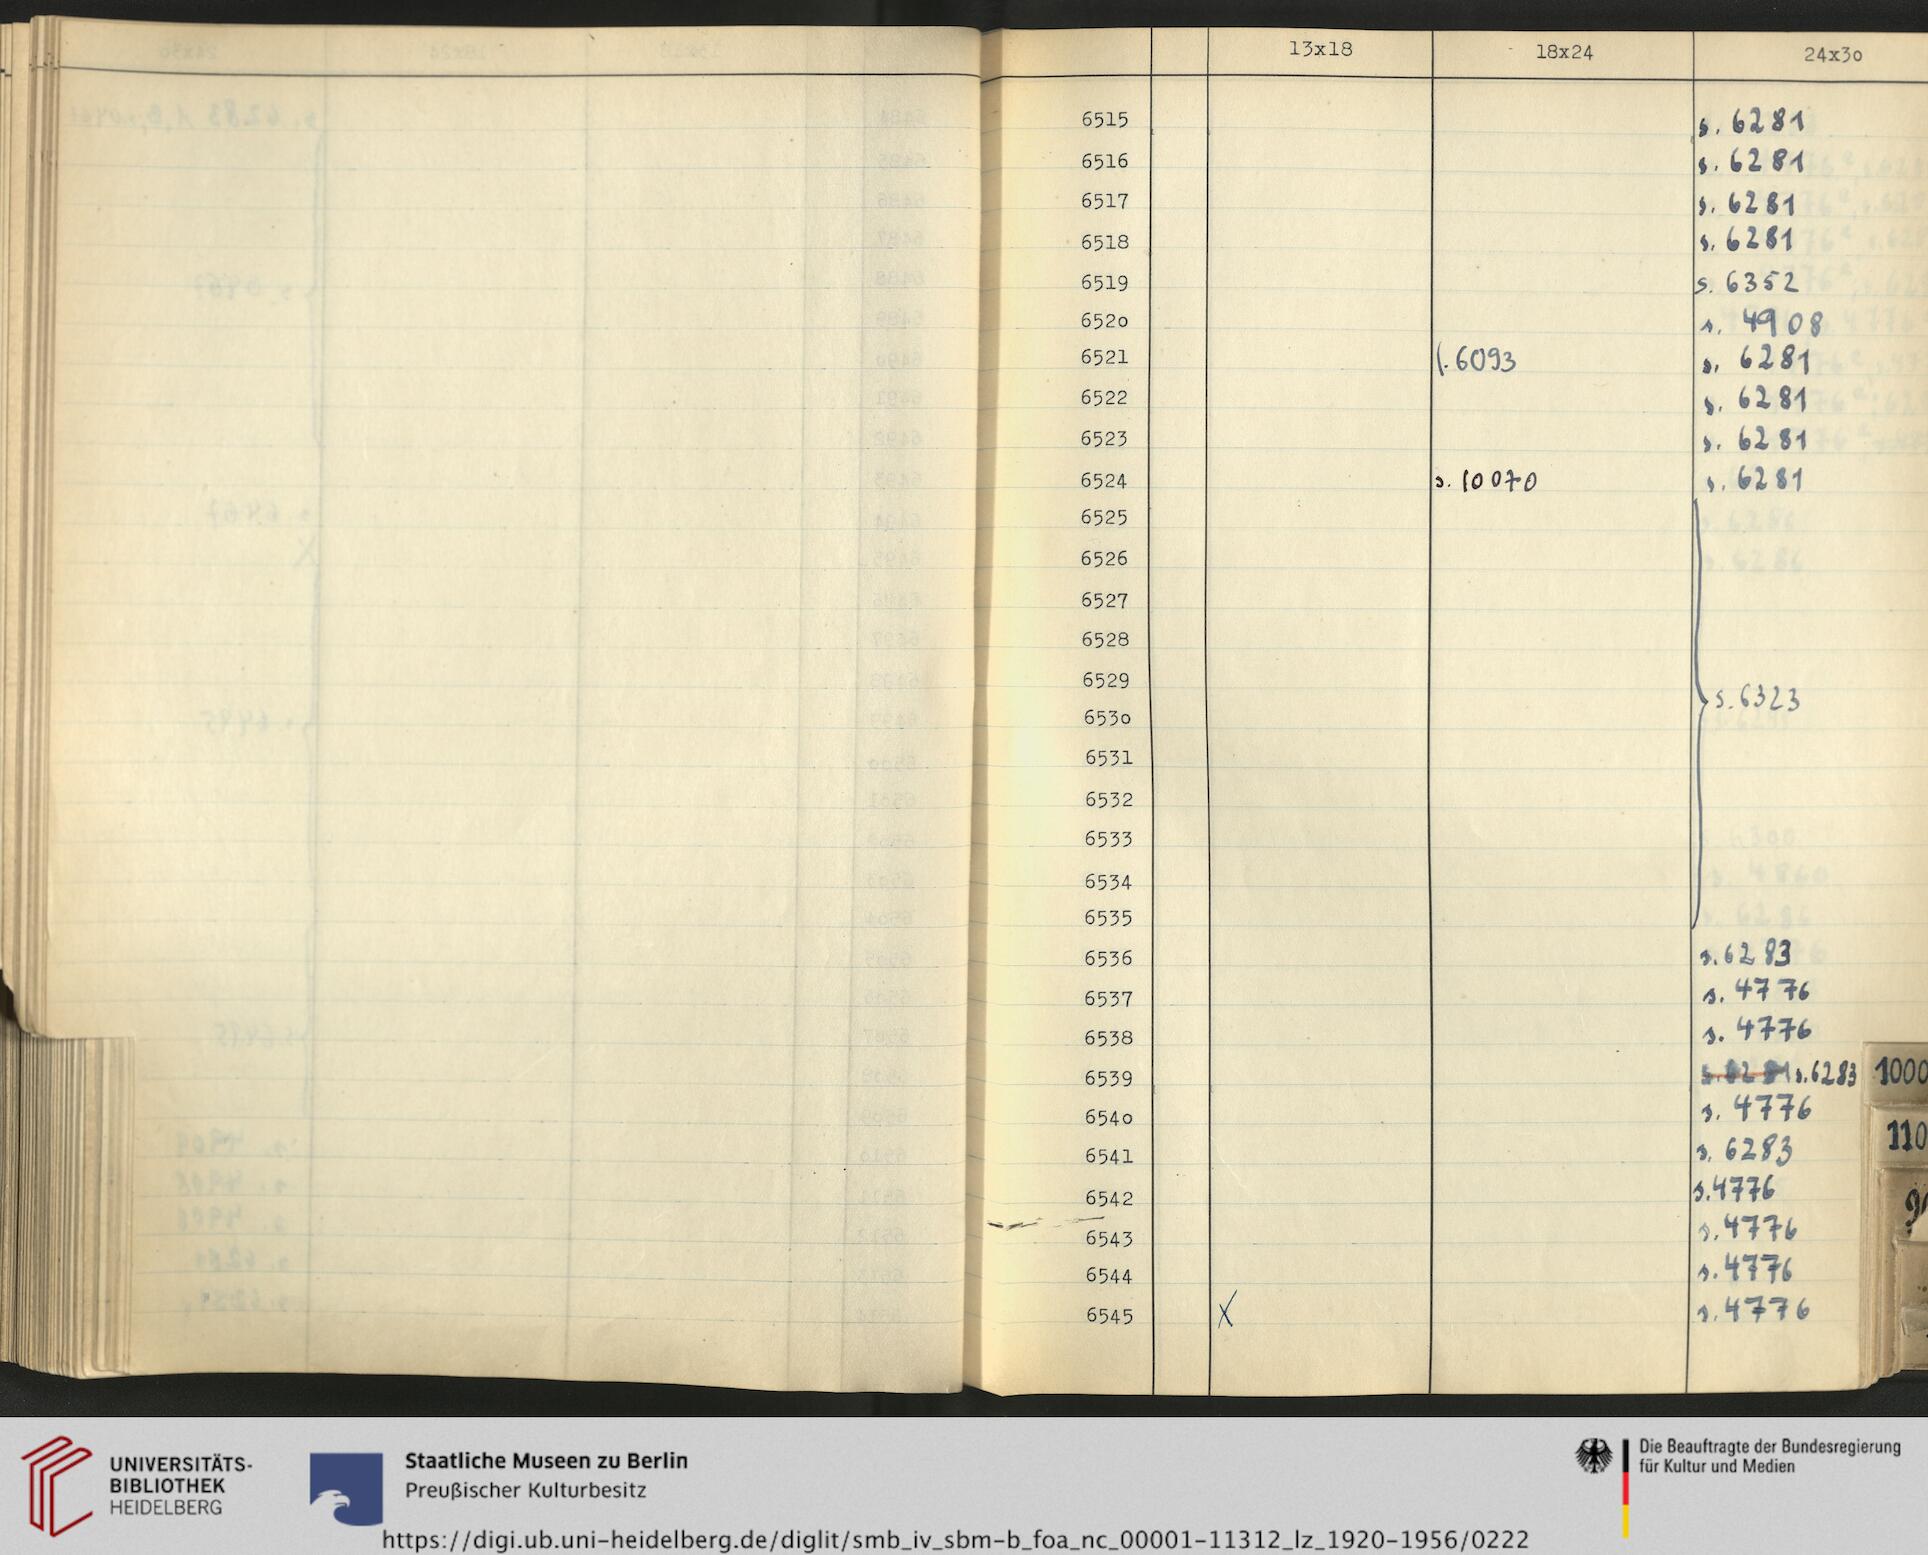 13x18 18x24 24x3o
6515 s. 6281
6516 s. 6281
6517 s. 6281
6518 s. 6281
6519 s. 6352
652o s. 4908
6521 s. 6093 s. 6281
6522 s. 6281
6523 s. 6281
6524 s. 10070 s. 6281
6525
6526
6527
6528
6529
653o s. 6323
6531
6532
6533
6534
6535
6536 s. 6283
6537 s. 4776
6538 s. 4776
6539 s. 6281 s. 6283
654o s. 4776
6541 s. 6283
6542 s. 4776
6543 s. 4776
6544 s. 4776
6545 X s. 4776
1000
110
UNIVERSITÄTS-
BIBLIOTHEK
HEIDELBERG
Staatliche Museen zu Berlin
Preußischer Kulturbesitz
Die Beauftragte der Bundesregierung
für Kultur und Medien
https://digi.ub.uni-heidelberg.de/diglit/smb_iv_sbm-b_foa_nc_00001-11312_lz_1920-1956/0222